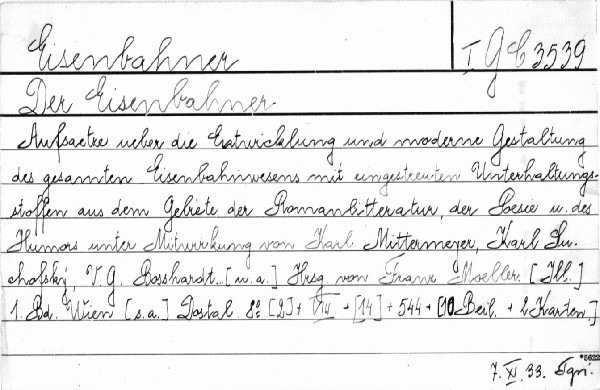 Eisenbahner
I Gb 3539
Der Eisenbahner
Aufsaetze ueber die Entwicklung und moderne Gestaltung
des gesamten Eisenbahnwesens mit eingestreuten Unterhaltungs-
stoffen aus dem Gebiete der Romanlitteratur, der Poesie u. des
Humors unter Mitwirkung von Karl Mittermeyer, Karl Su-
cholský, V. G. Bosshardt [u.a.] Hrsg. von Franz Moebler. [Ill.]
1. Bd. Wien [s.a.] Dostal. 8° [2] + VIII + [14] + 544 + [10 Beil. + 2 Karten.]
*5622
7. XI. 33.